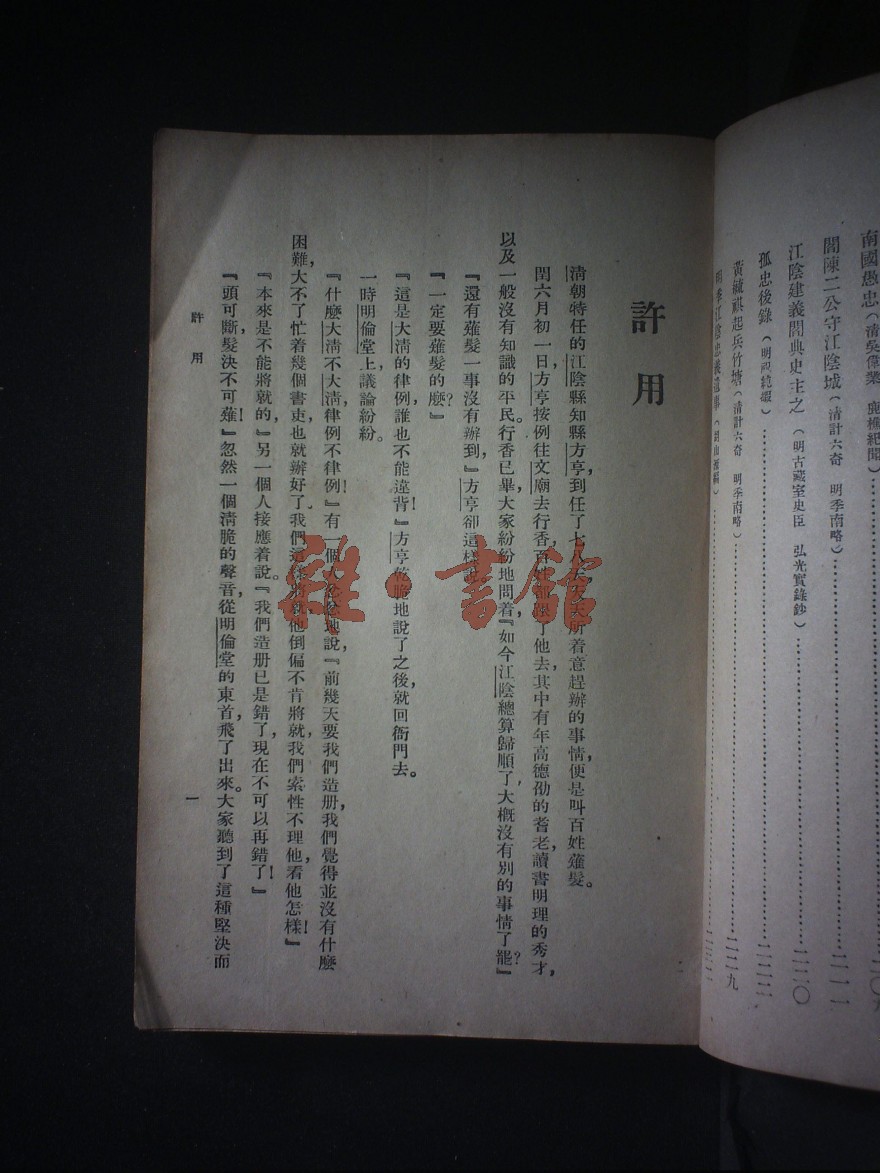 南國愚忠(清吳偉業 鹿樵紀聞)
閻陳二公守江陰城(清計六奇 明季南略)……二一一
江陰建義閻典史主之(明古藏室史臣 弘光實錄鈔)……二二〇
孤忠後錄(明祝純嘏)……二二二
黃毓祺起兵竹塘(清計六奇 明季南略)……二二九
許用
清朝特任的江陰縣知縣方亨,到任了七八天,天天所着意趕辦的事情,便是叫百姓薙髮。
閏六月初一日,方亨按例往文廟去行香,百姓都隨了他去,其中有年高德劭的耆老,讀書明理的秀才,
以及一般沒有知識的平民。行香已畢,大家紛紛地問着『如今江陰總算歸順了,大概沒有別的事情了罷?』
『還有薙髮一事沒有辦到,』方亨卻這樣說。
『一定要薙髮的麽?』
『這是大清的律例,誰也不能違背!』方亨乾脆地說了之後,就回衙門去。
一時明倫堂上議論紛紛。
『什麽大清不大清,律例不律例!』有一個人忿忿地說,『前幾天要我們造册,我們覺得並沒有什麽
困難,大不了忙着幾個書吏,也就辦好了。我們這樣將就,他倒偏不肯將就,我們索性不理他,看他怎樣!』
『本來是不能將就的,』另一個人接應着說。『我們造册已是錯了,現在不可以再錯了!』
『頭可斷,髮決不可薙!』忽然一個清脆的聲音,從明倫堂的東首,飛了出來。大家聽到了這種堅決而
許用
一
雜·書館